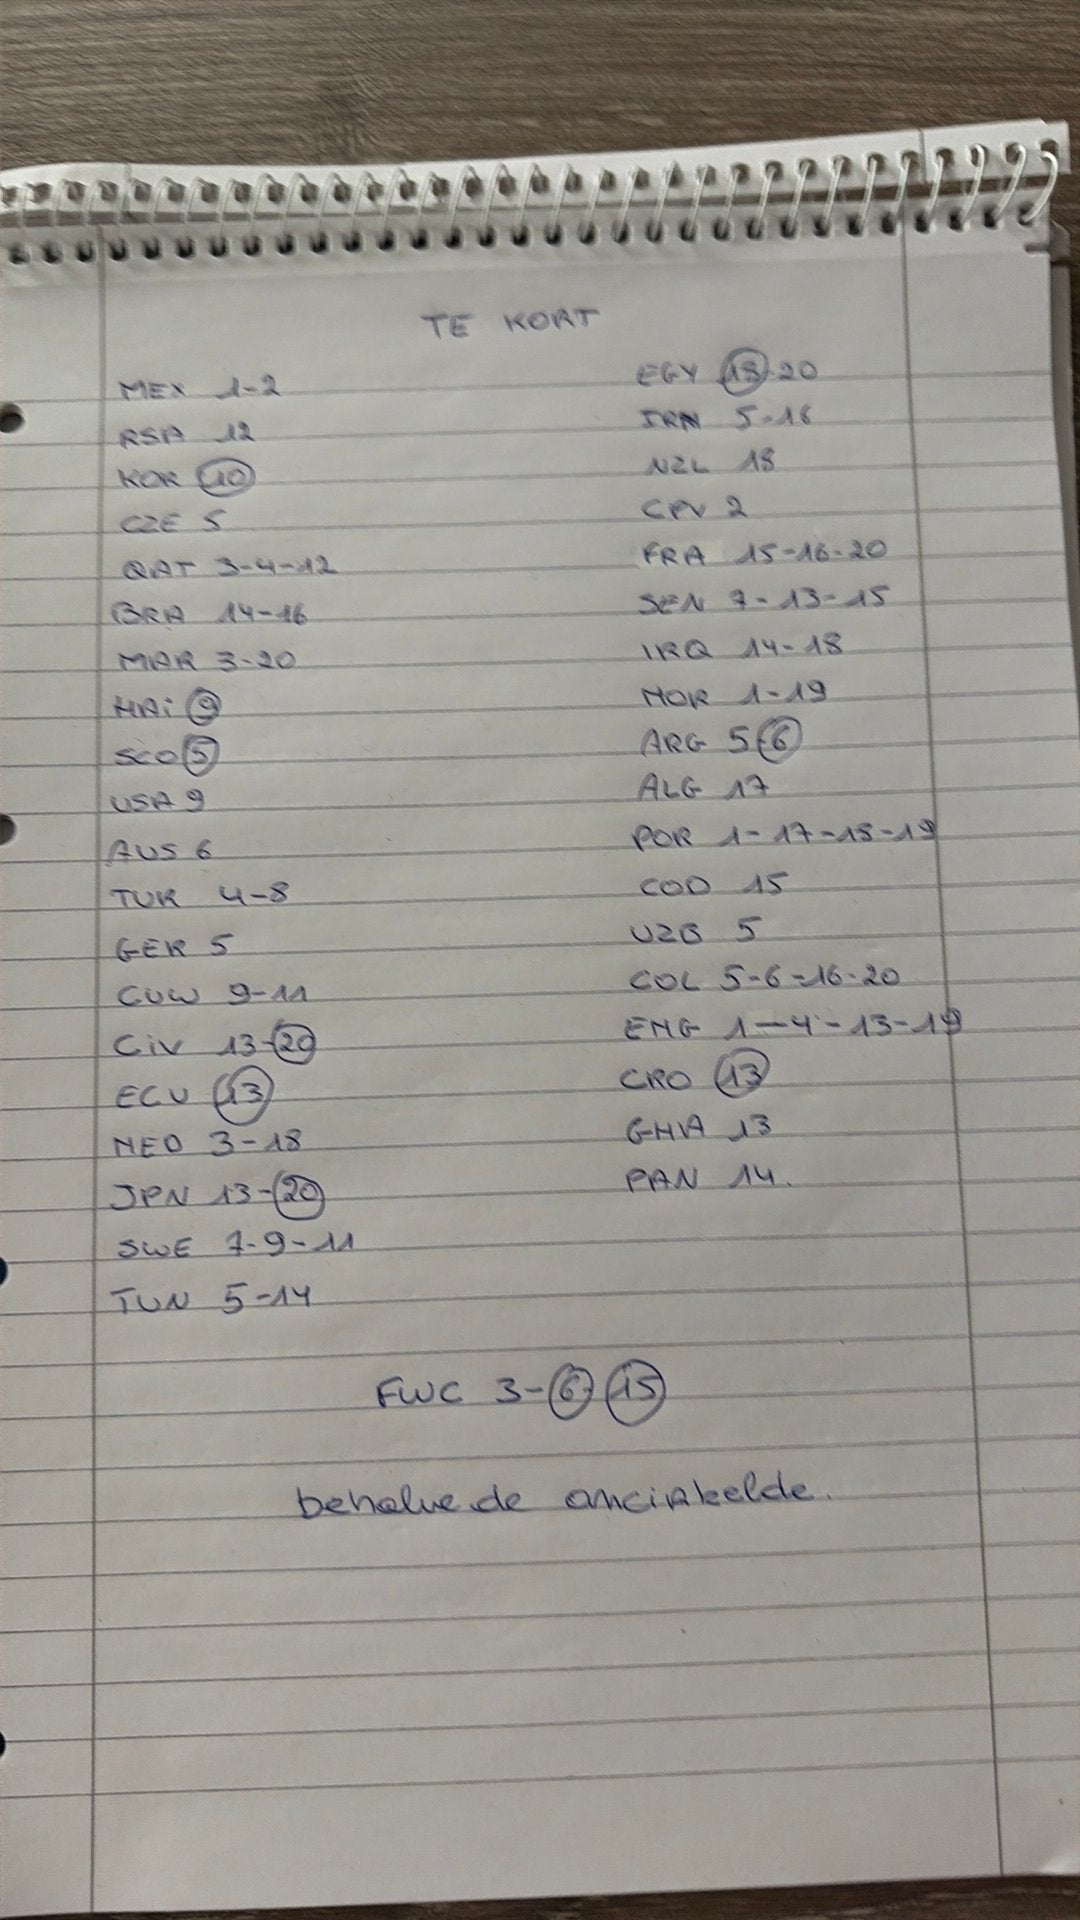 TE KORT
MEX 1-2
RSA 12
KOR 10
CZE 5
QAT 3-4-12
BRA 14-16
MAR 3-20
HAi 9
SCO 5
USA 9
AUS 6
TUR 4-8
GER 5
CUW 9-11
CiV 13-20
ECU 13
NED 3-18
JPN 13-20
SWE 7-9-11
TUN 5-14
EGY 18-20
IRN 5-16
NZL 18
CPV 2
FRA 15-16-20
SEN 7-13-15
IRQ 14-18
NOR 1-19
ARG 5-6
ALG 17
POR 1-17-18-19
COD 15
UZB 5
COL 5-6-16-20
ENG 1-4-13-19
CRO 13
GHA 13
PAN 14.
FWC 3-6-15
behalve de omcirkelde.